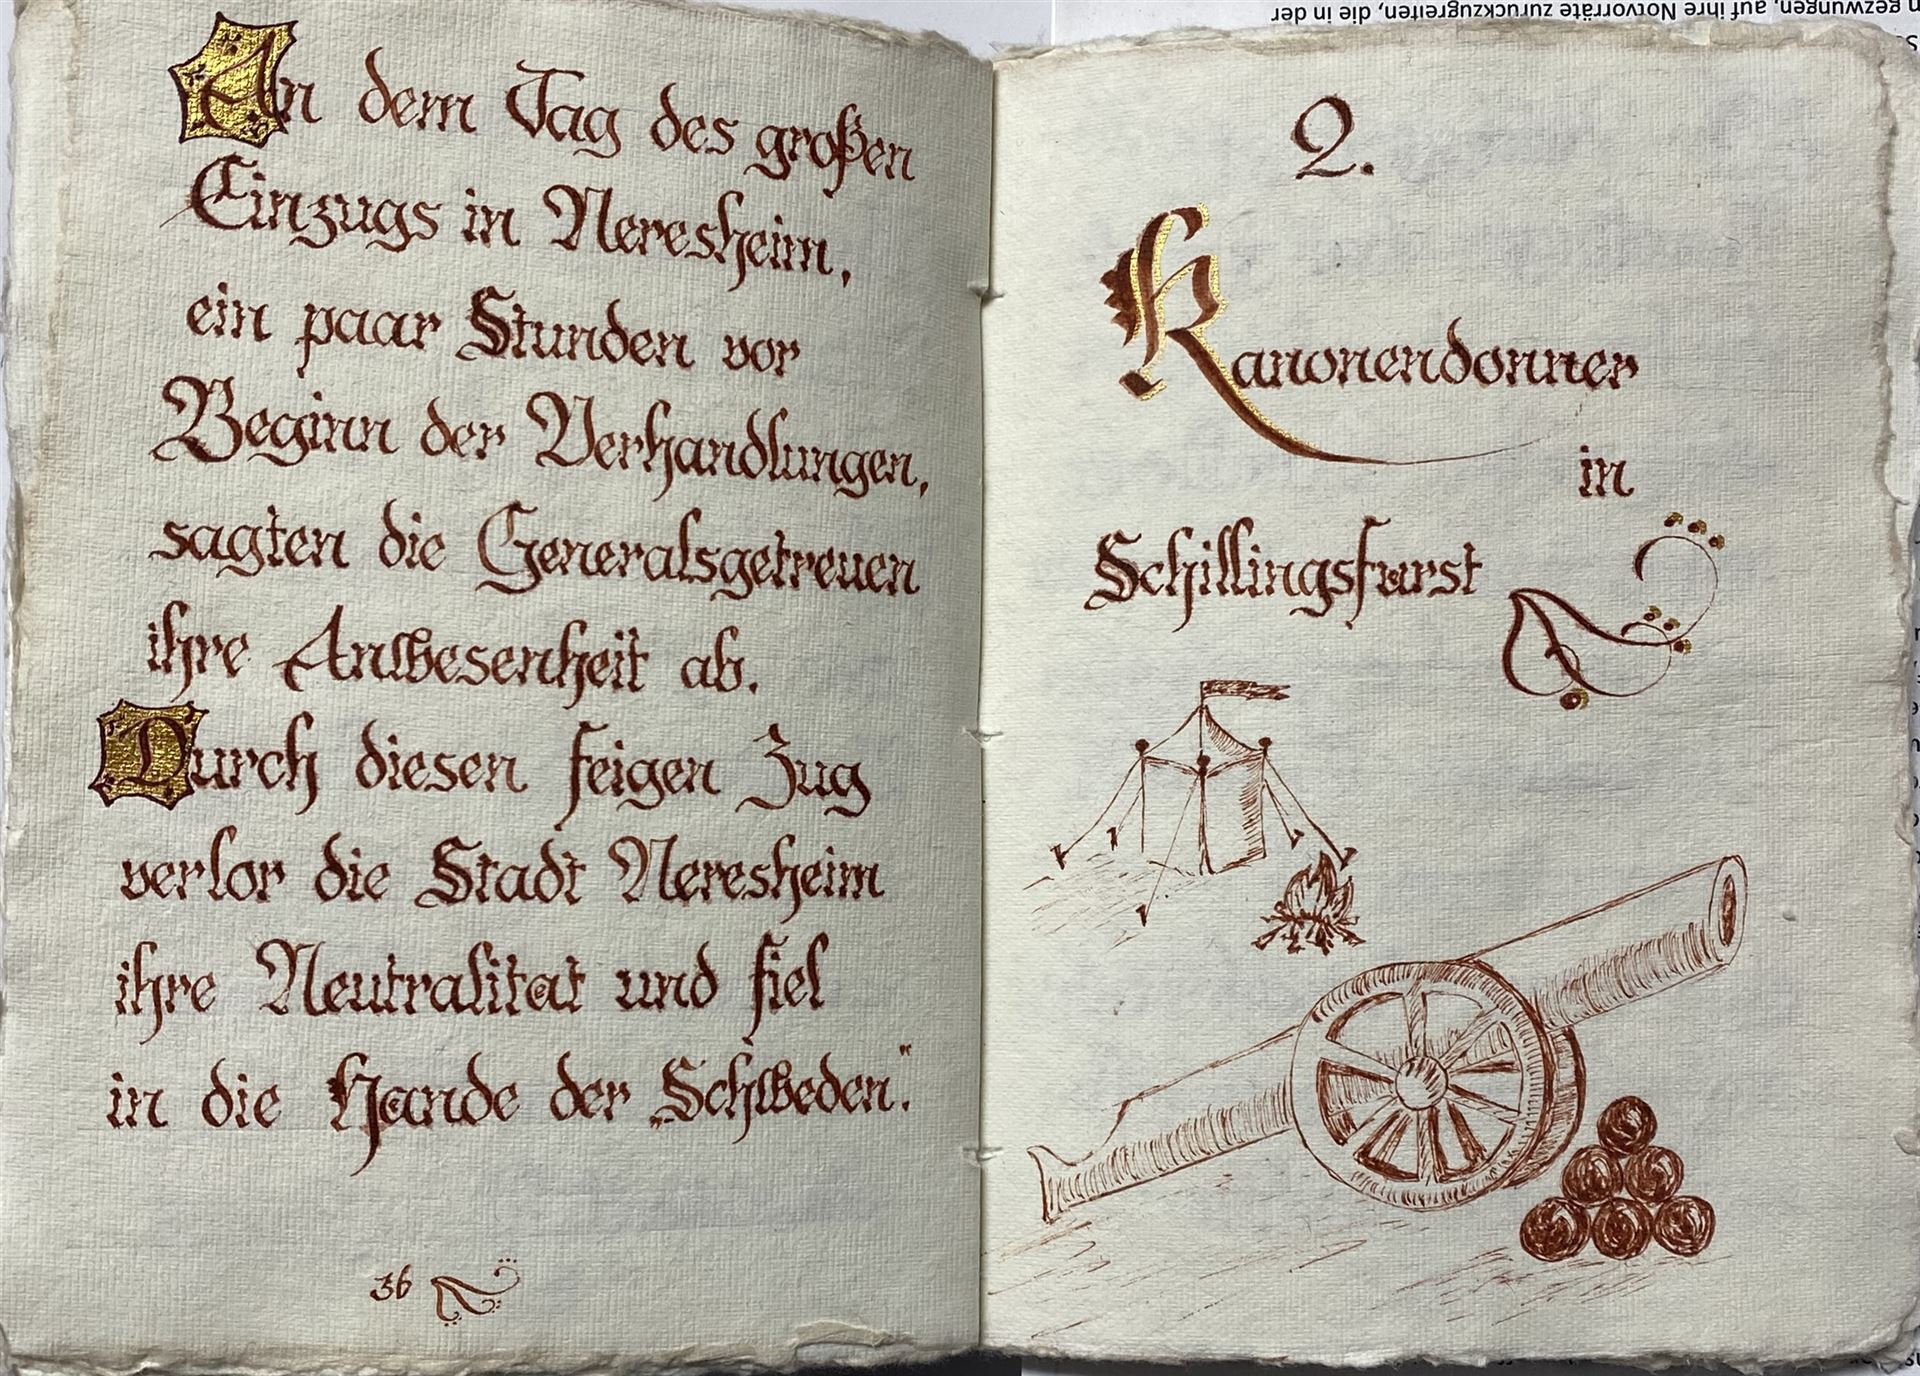 An dem Tag des großen
Einzugs in Neresheim,
ein paar Stunden vor
Beginn der Verhandlungen,
sagten die Generalsgetreuen
ihre Anwesenheit ab.
Durch diesen feigen Zug
verlor die Stadt Neresheim
ihre Neutralität und fiel
in die Hände der „Schweden.“
36
2.
Kanonendonner
in
Schillingsfürst
gezwungen, auf ihre Notvorräte zurückzugreifen, die in der